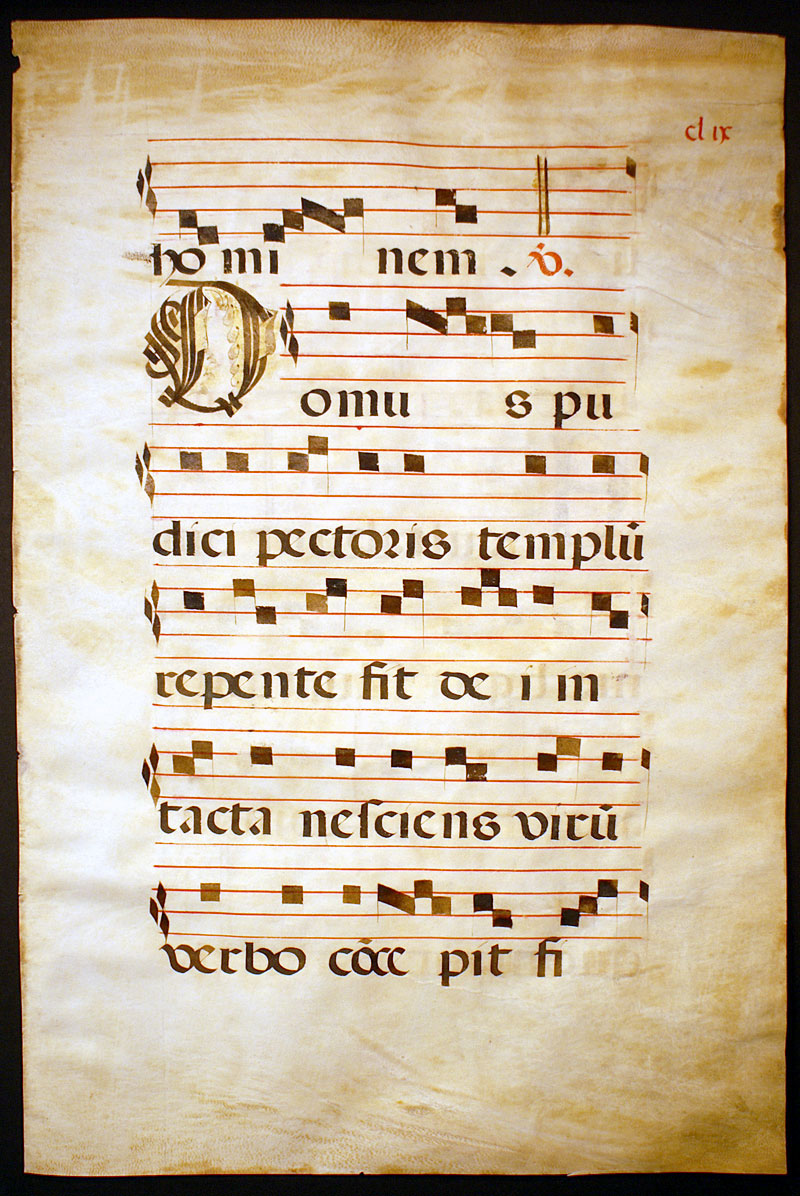 cl ix
ho mi nem . v̇.
Domu s pu
dici pectoris templū
repente fit de i in
tacta neſciens virū
verbo cōcepit fi